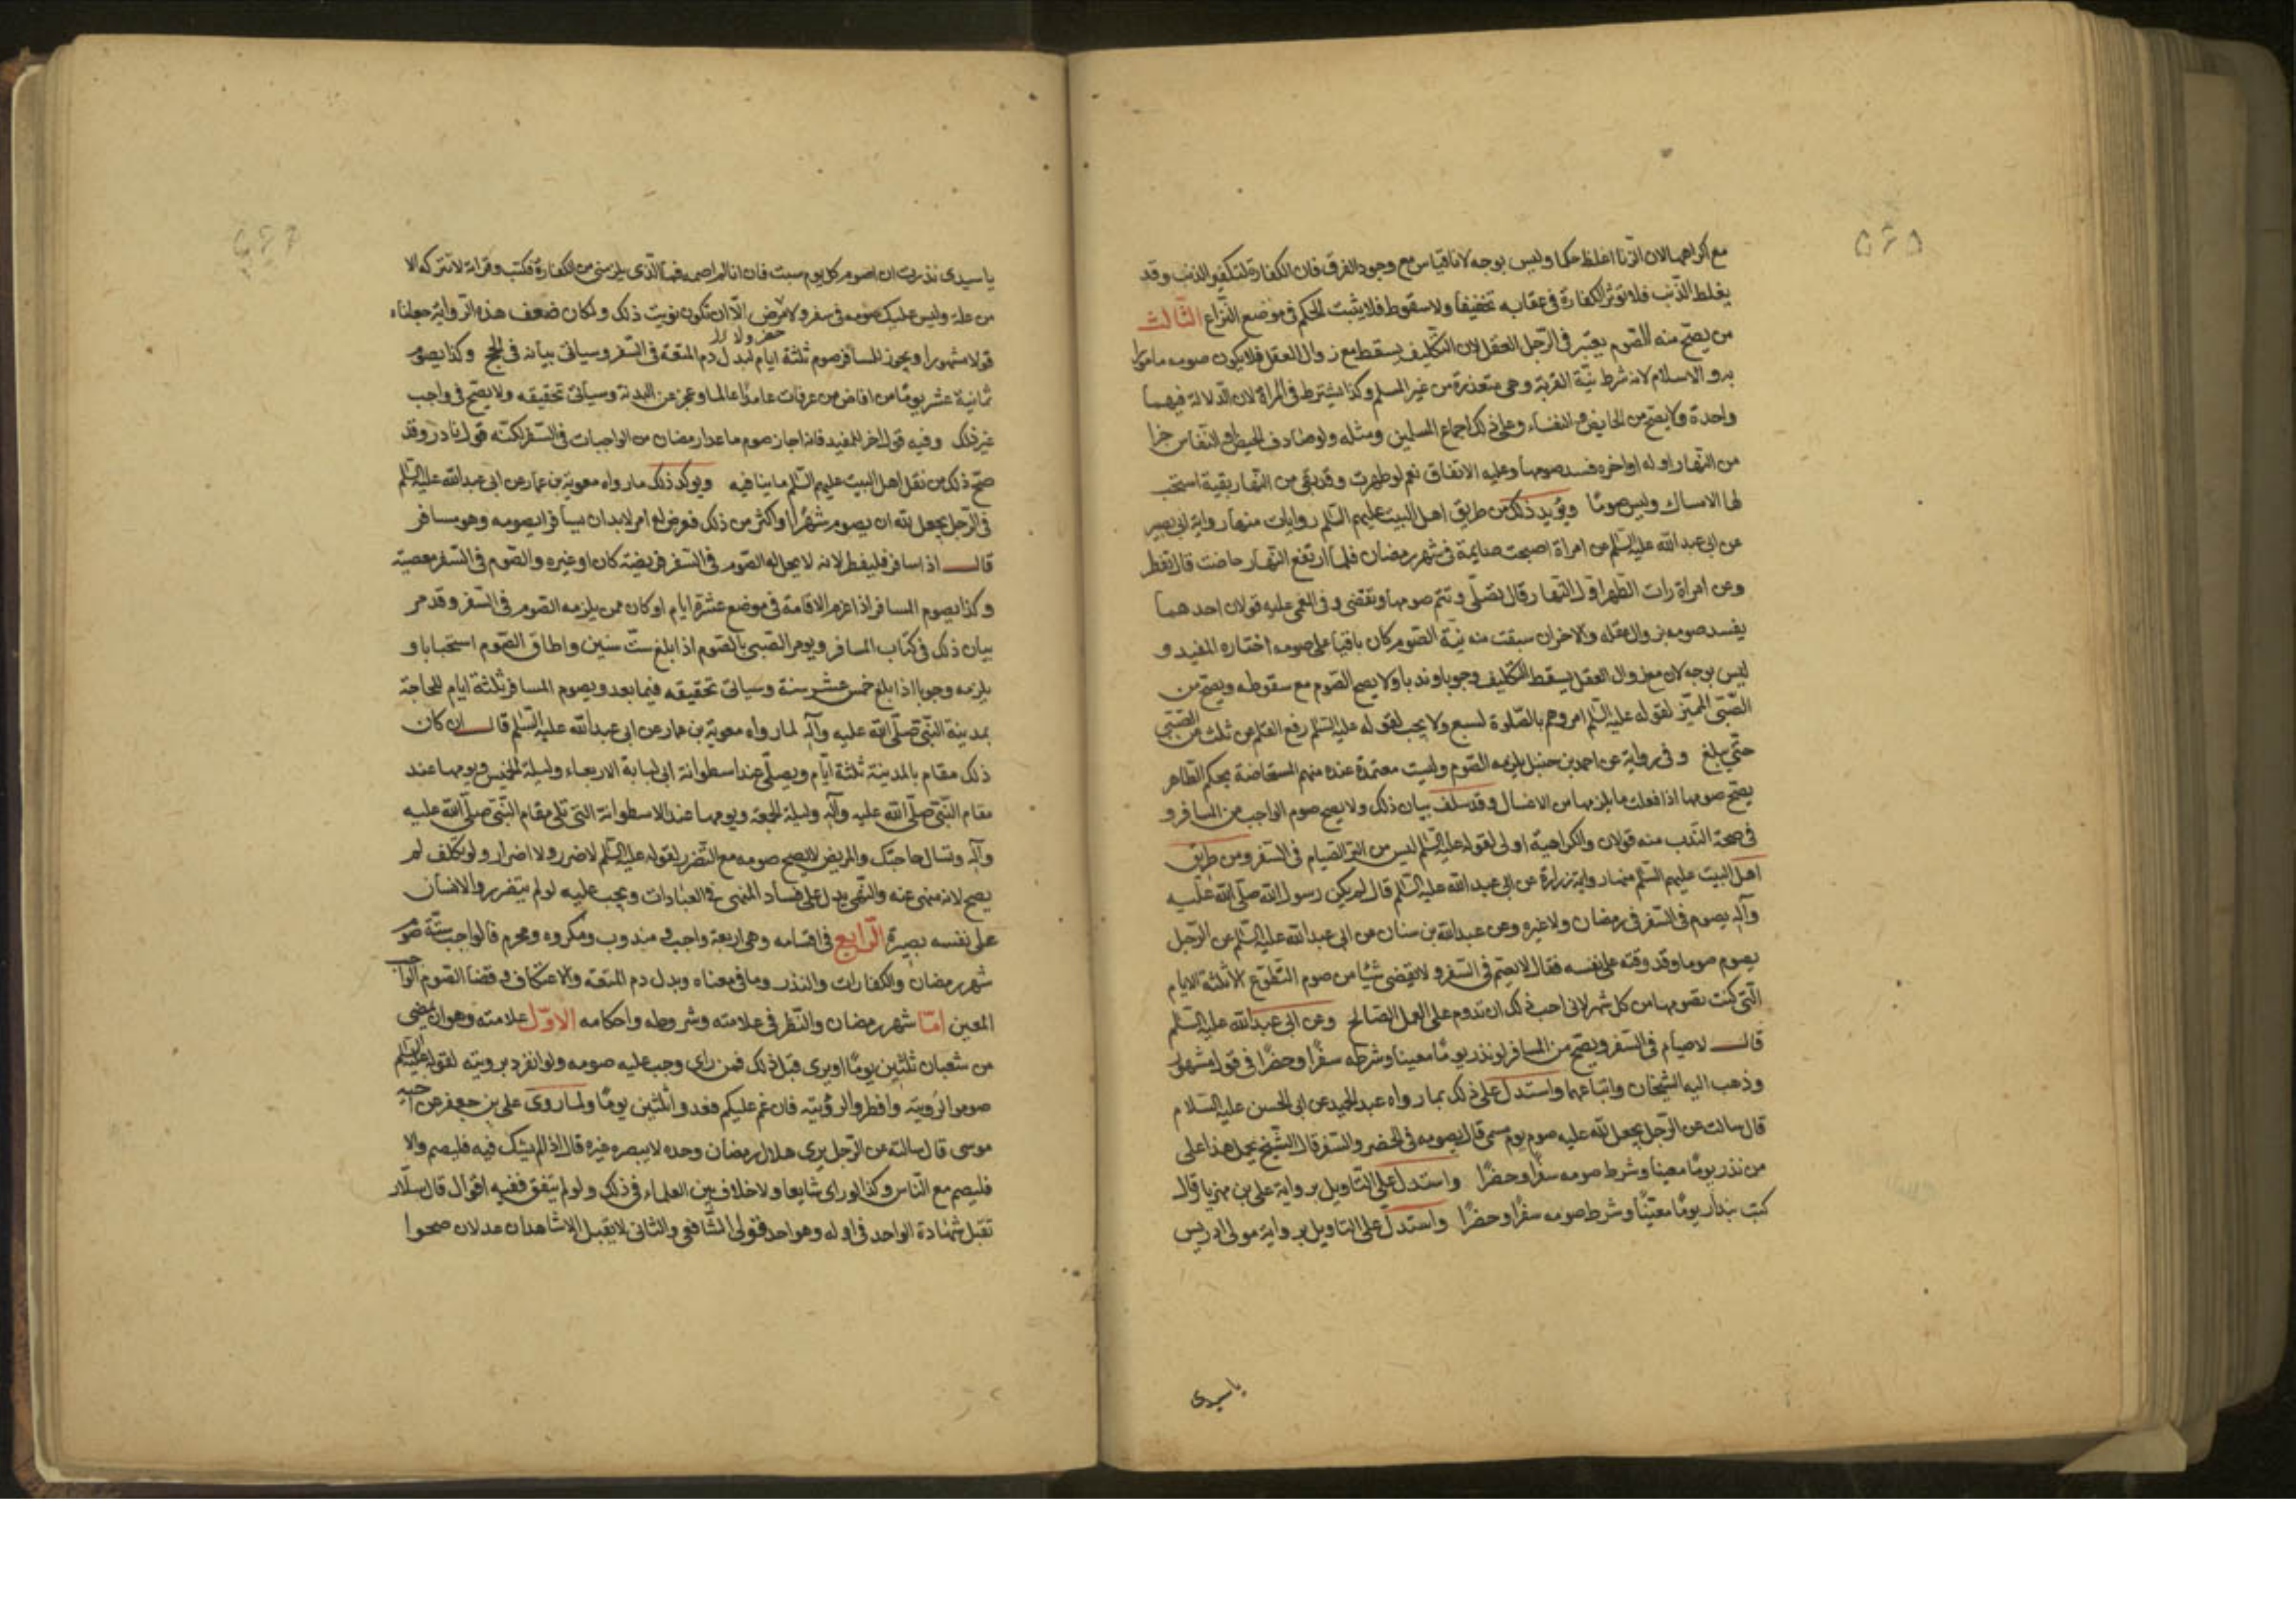 مع اكراهها لان الزنا اغلظ حكما وليس بوجه لانا قياس مع وجود الفرق فان الكفارة لتكفير الذنب وقد
يغلظ الذنب فلا تؤثر الكفارة في عقابه تخفيفا ولا سقوطا فلا يثبت الحكم في موضع النزاع الثالث
من يصح منه الصوم يعتبر في الرجل العقل لان التكليف يسقط مع زوال العقل فلا يكون صومه مامورا
به والاسلام لانه شرط نية القربة وهي متعذرة من غير المسلم وكذا يشترط في المراة لان الدلالة فيهما
واحدة ولا يصح من الحايض والنفساء وعلى ذلك اجماع المسلمين ومثله ولو صادف الحيض او النفاس جزا
من النهار اوله او اخره فسد صومها وعليه الاتفاق نعم لو طهرت وقد بقي من النهار بقية استحب
لها الامساك وليس صوما ويؤيد ذلك من طريق اهل البيت عليهم السلم روايات منها رواية ابي بصير
عن ابي عبد الله عليه السلم عن امراة اصبحت صايمة في شهر رمضان فلما ارتفع النهار حاضت قال تفطر
وعن امراة رات الطهر اول النهار قال تصلي وتتم صومها وتقضي وفي المغمى عليه قولان احدهما
يفسد صومه بزوال عقله والاخر ان سبقت منه نية الصوم كان باقيا على صومه اختاره المفيد و
ليس بوجه لان مع زوال العقل يسقط التكليف وجوبا وندبا ولا يصح الصوم مع سقوطه ويصح من
الصبي المميز لقوله عليه السلم امروهم بالصلوة لسبع ولا يجب لقوله عليه السلم رفع القلم عن ثلث عن الصبي
حتى يبلغ وفي رواية عن احمد بن حنبل يلزمه الصوم وليست معتمدة عنده منهم المستحاضة بحكم الطاهر
يصح صومها اذا فعلت ما يلزمها من الاغسال وقد سلف بيان ذلك ولا يصح صوم الواجب من المسافر و
في صحة الندب منه قولان والكراهية اولى لقوله عليه السلم ليس من البر الصيام في السفر ومن طريق
اهل البيت عليهم السلم منها رواية زرارة عن ابي عبد الله عليه السلم قال لم يكن رسول الله صلى الله عليه
وآله يصوم في السفر في رمضان ولا غيره وعن عبد الله بن سنان عن ابي عبد الله عليه السلم عن الرجل
يصوم صوما وقد وقته على نفسه فقال لا يصم في السفر ولا يقضي شيئا من صوم التطوع الا الثلثة الايام
التي كنت تصومها من كل شهر لاني احب ذلك ان تدوم على العمل الصالح وعن ابي عبد الله عليه السلم
قال لا صيام في السفر ويصح من المسافر لو نذر يوما معينا وشرطه سفرا وحضرا في قول مشهور
وذهب اليه الشيخان واتباعهما واستدل على ذلك بما رواه عبد الحميد عن ابي الحسن عليه السلام
قال سالت عن الرجل يجعل لله عليه صوم يوم مسمى قال يصومه في الحضر والسفر قال الشيخ يحمل هذا على
من نذر يوما معينا وشرط صومه سفرا وحضرا واستدل على التاويل برواية علي بن مهزيار قال
كتب بندار يوما معينا وشرط صومه سفرا وحضرا واستدل على التاويل برواية مولى ادريس
يا سيدي
يا سيدي نذرت ان اصوم كل يوم سبت فان انا لم اصمه فما الذي يلزمني من الكفارة فكتب وقراته لا تتركه الا
من علة وليس عليك صومه في سفر ولا مرض الا ان تكون نويت ذلك ولمكان ضعف هذه الرواية جعلناه
قولا مشهورا ويجوز للمسافر صوم ثلثة ايام لبدل دم المتعة في السفر وسياتي بيانه في الحج وكذا يصوم
ثمانية عشر يوما من افاض من عرفات عامدا عالما وعجز عن البدنة وسياتي تحقيقه ولا يصح في واجب
غير ذلك وفيه قول اخر للمفيد فانه اجاز صوم ما عدا رمضان من الواجبات في السفر لكنه قول نادر وقد
صح ذلك من نقل اهل البيت عليهم السلم ما ينافيه ويوكد ذلك ما رواه معوية بن عمار عن ابي عبد الله عليه السلم
في الرجل يجعل لله ان يصوم شهرا او اكثر من ذلك فعرض له امر لا بد ان يسافر ايصومه وهو مسافر
قال اذا سافر فليفطر لانه لا يحل له الصوم في السفر فريضة كان او غيره والصوم في السفر معصية
وكذا يصوم المسافر اذا عزم الاقامة في موضع عشرة ايام او كان ممن يلزمه الصوم في السفر وقد مر
بيان ذلك في كتاب المسافر ويومر الصبي بالصوم اذا بلغ ست سنين واطاق الصوم استحبابا و
يلزمه وجوبا اذا بلغ خمس عشر سنة وسياتي تحقيقه فيما بعد ويصوم المسافر ثلثة ايام للحاجة
بمدينة النبي صلى الله عليه وآله لما رواه معوية بن عمار عن ابي عبد الله عليه السلم قال ان كان
ذلك مقام بالمدينة ثلثة ايام ويصلي عند اسطوانة ابي لبابة الاربعاء وليلة الخميس ويومها عند
مقام النبي صلى الله عليه وآله وليلة الجمعة ويومها عند الاسطوانة التي تلي مقام النبي صلى الله عليه
وآله وتسال حاجتك والمريض لا يصح صومه مع التضرر لقوله عليه السلم لا ضرر ولا اضرار ولو تكلف لم
يصح لانه منهي عنه والنهي يدل على فساد المنهي في العبادات ويجب عليه لو لم يتضرر والانسان
على نفسه بصيرة الرابع في اقسامه وهي اربعة واجب ومندوب ومكروه ومحرم فالواجب ستة صوم
شهر رمضان والكفارات والنذر وما في معناه وبدل دم المتعة والاعتكاف وقضا الصوم الواجب
المعين اما شهر رمضان والنظر في علامته وشروطه واحكامه الاول علامته وهو ان يمضي
من شعبان ثلثين يوما او يرى قبل ذلك فمن راى وجب عليه صومه ولو انفرد برويته لقوله عليه السلم
صوموا لرويته وافطروا لرؤيته فان غم عليكم فعدوا ثلثين يوما ولما روى علي بن جعفر عن اخيه
موسى قال سالته عن الرجل يرى هلال رمضان وحده لا يبصره غيره قال اذا لم يشك فيه فليصم والا
فليصم مع الناس وكذا لو راى شايعا ولا خلاف بين العلماء في ذلك ولو لم يتفق ففيه اقوال قال سلار
تقبل شهادة الواحد في اوله وهو احد قولي الشافعي والثاني لا يقبل الا شاهدان عدلان صحوا